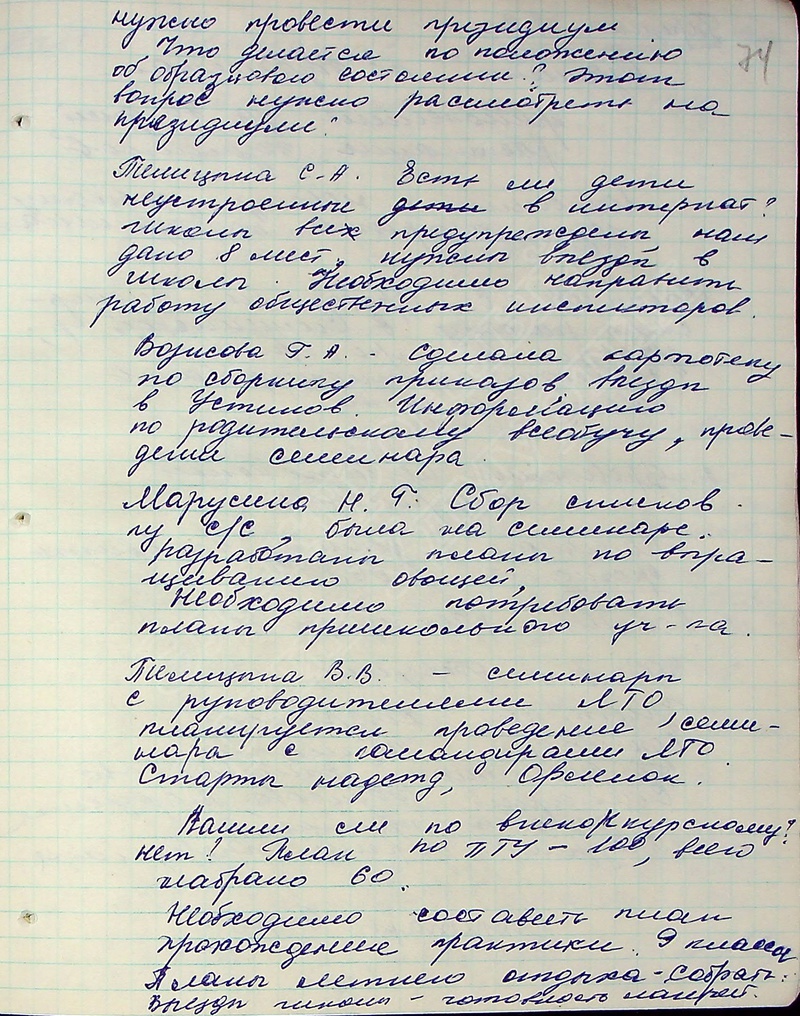 нужно провести президиум
74
Что делается по положению
об образцовом состоянии? Этот
вопрос нужно рассмотреть на
президиуме.
Телицына С.А. Есть ли дети
неустроенные дети в интернат?
школы все предупреждены, нам
дано 8 мест, нужны выезды в
школы. Необходимо направить
работу общественных инспекторов.
Возисова Г.А. - сделала картотеку
по сборнику приказов, выезды
в Устинов. Информацию
по родительскому всеобучу, прове-
дении семинара.
Марусина Н.Г. Сбор списков
с/с, была на семинаре.
разработаны планы по выра-
щиванию овощей,
Необходимо потребовать
планы пришкольного уч-ка.
Телицына В.В. - семинары
с руководителями ЛТО
планируется проведение семи-
нара с командирами ЛТО
Старты надежд, Орленок.
ли по
нет! План по ПТУ - 100, всего
набрано 60.
Необходимо составить план
прохождение практики 9 класса
Планы летнего отдыха - собрать.
Выезды школы - готовность лагерей.